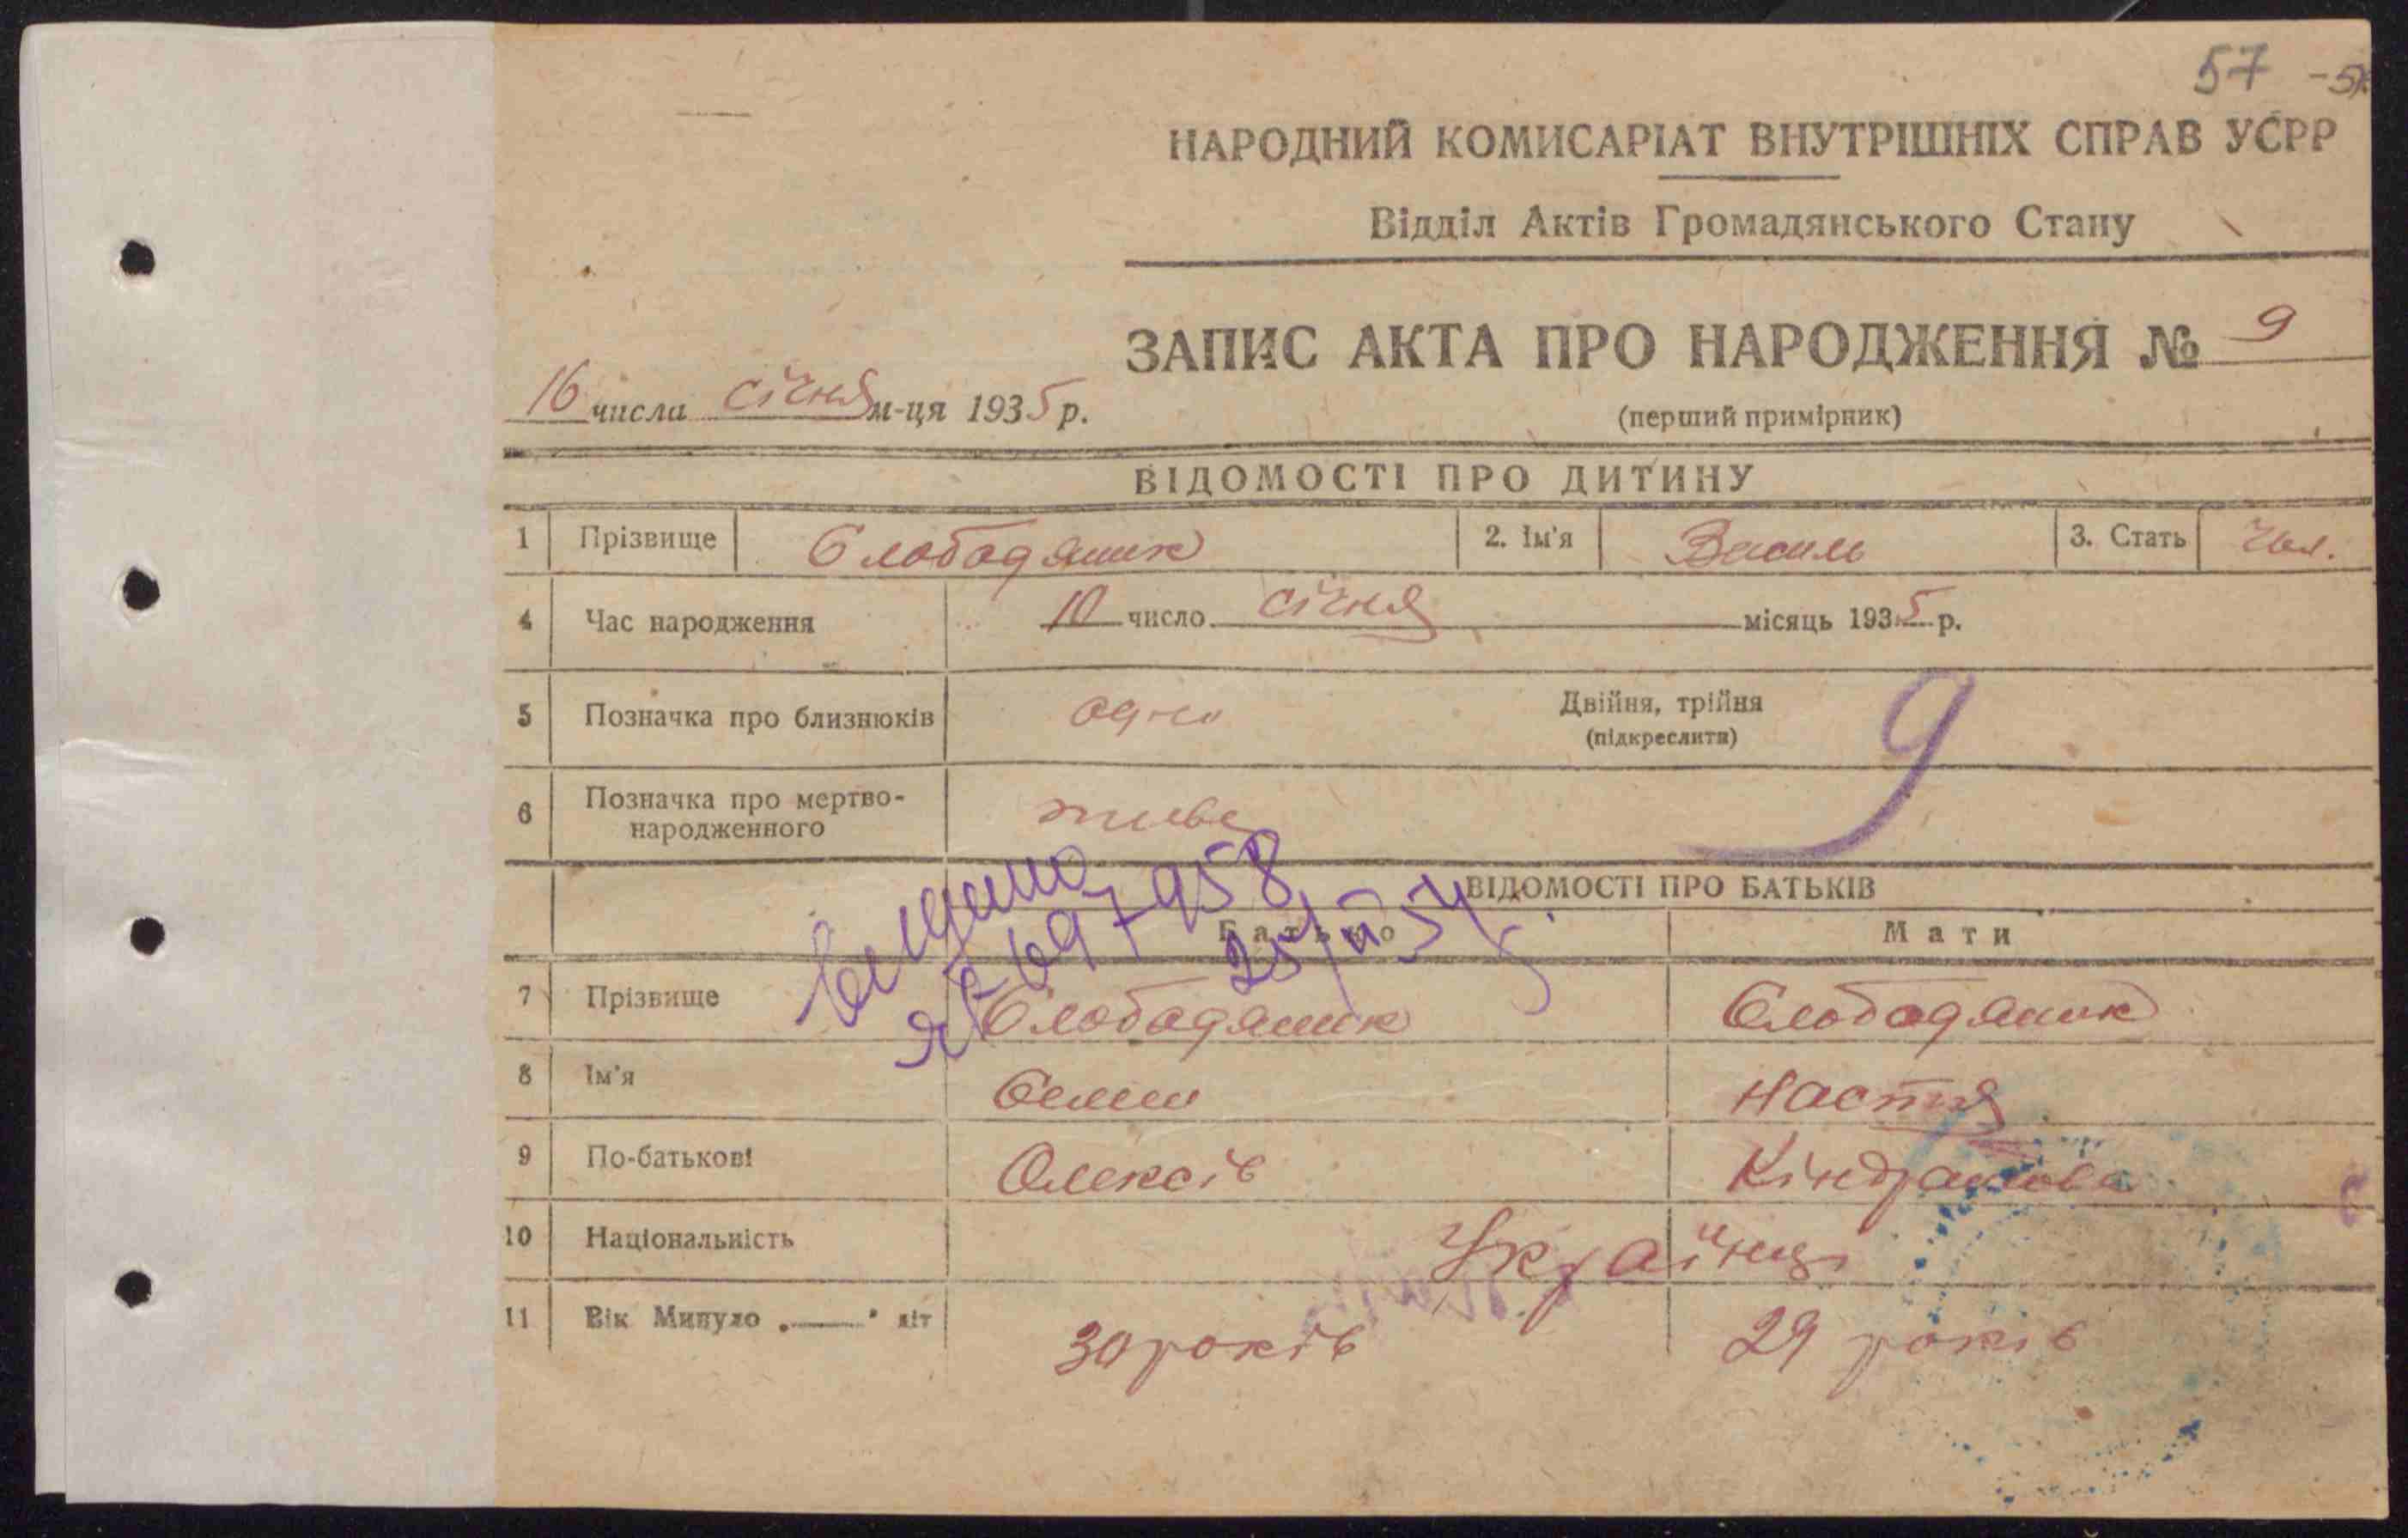 57
НАРОДНИЙ КОМИСАРІАТ ВНУТРІШНІХ СПРАВ УСРР
Відділ Актів Громадянського Стану
ЗАПИС АКТА ПРО НАРОДЖЕННЯ № 9
16 числа січня м-ця 1935 р.
(перший примірник)
ВІДОМОСТІ ПРО ДИТИНУ
1 Прізвище Слободяник 2. Ім'я Василь 3. Стать Чол.
4 Час народження 10 число січня місяць 1935 р.
5 Позначка про близнюків одно Двійня, трійня
(підкреслити)
9
6 Позначка про мертво-
народженного живе
ВІДОМОСТІ ПРО БАТЬКІВ
Батько Мати
7 Прізвище Слободяник Слободяник
8 Ім'я Семен Настя
9 По-батькові Олексів Кіндратова
10 Національність Українці
11 Вік Минуло „—“ літ 30 років 29 років